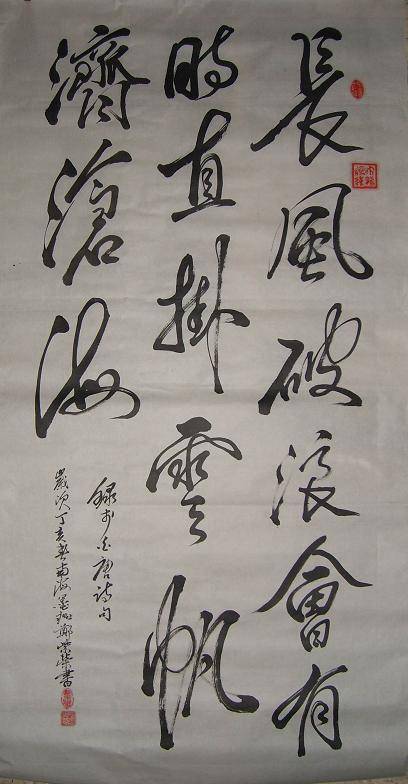 長風破浪會有
時直掛雲帆
濟滄海
錄李白唐詩句
歲次丁亥春南海墨鄉鄭榮書